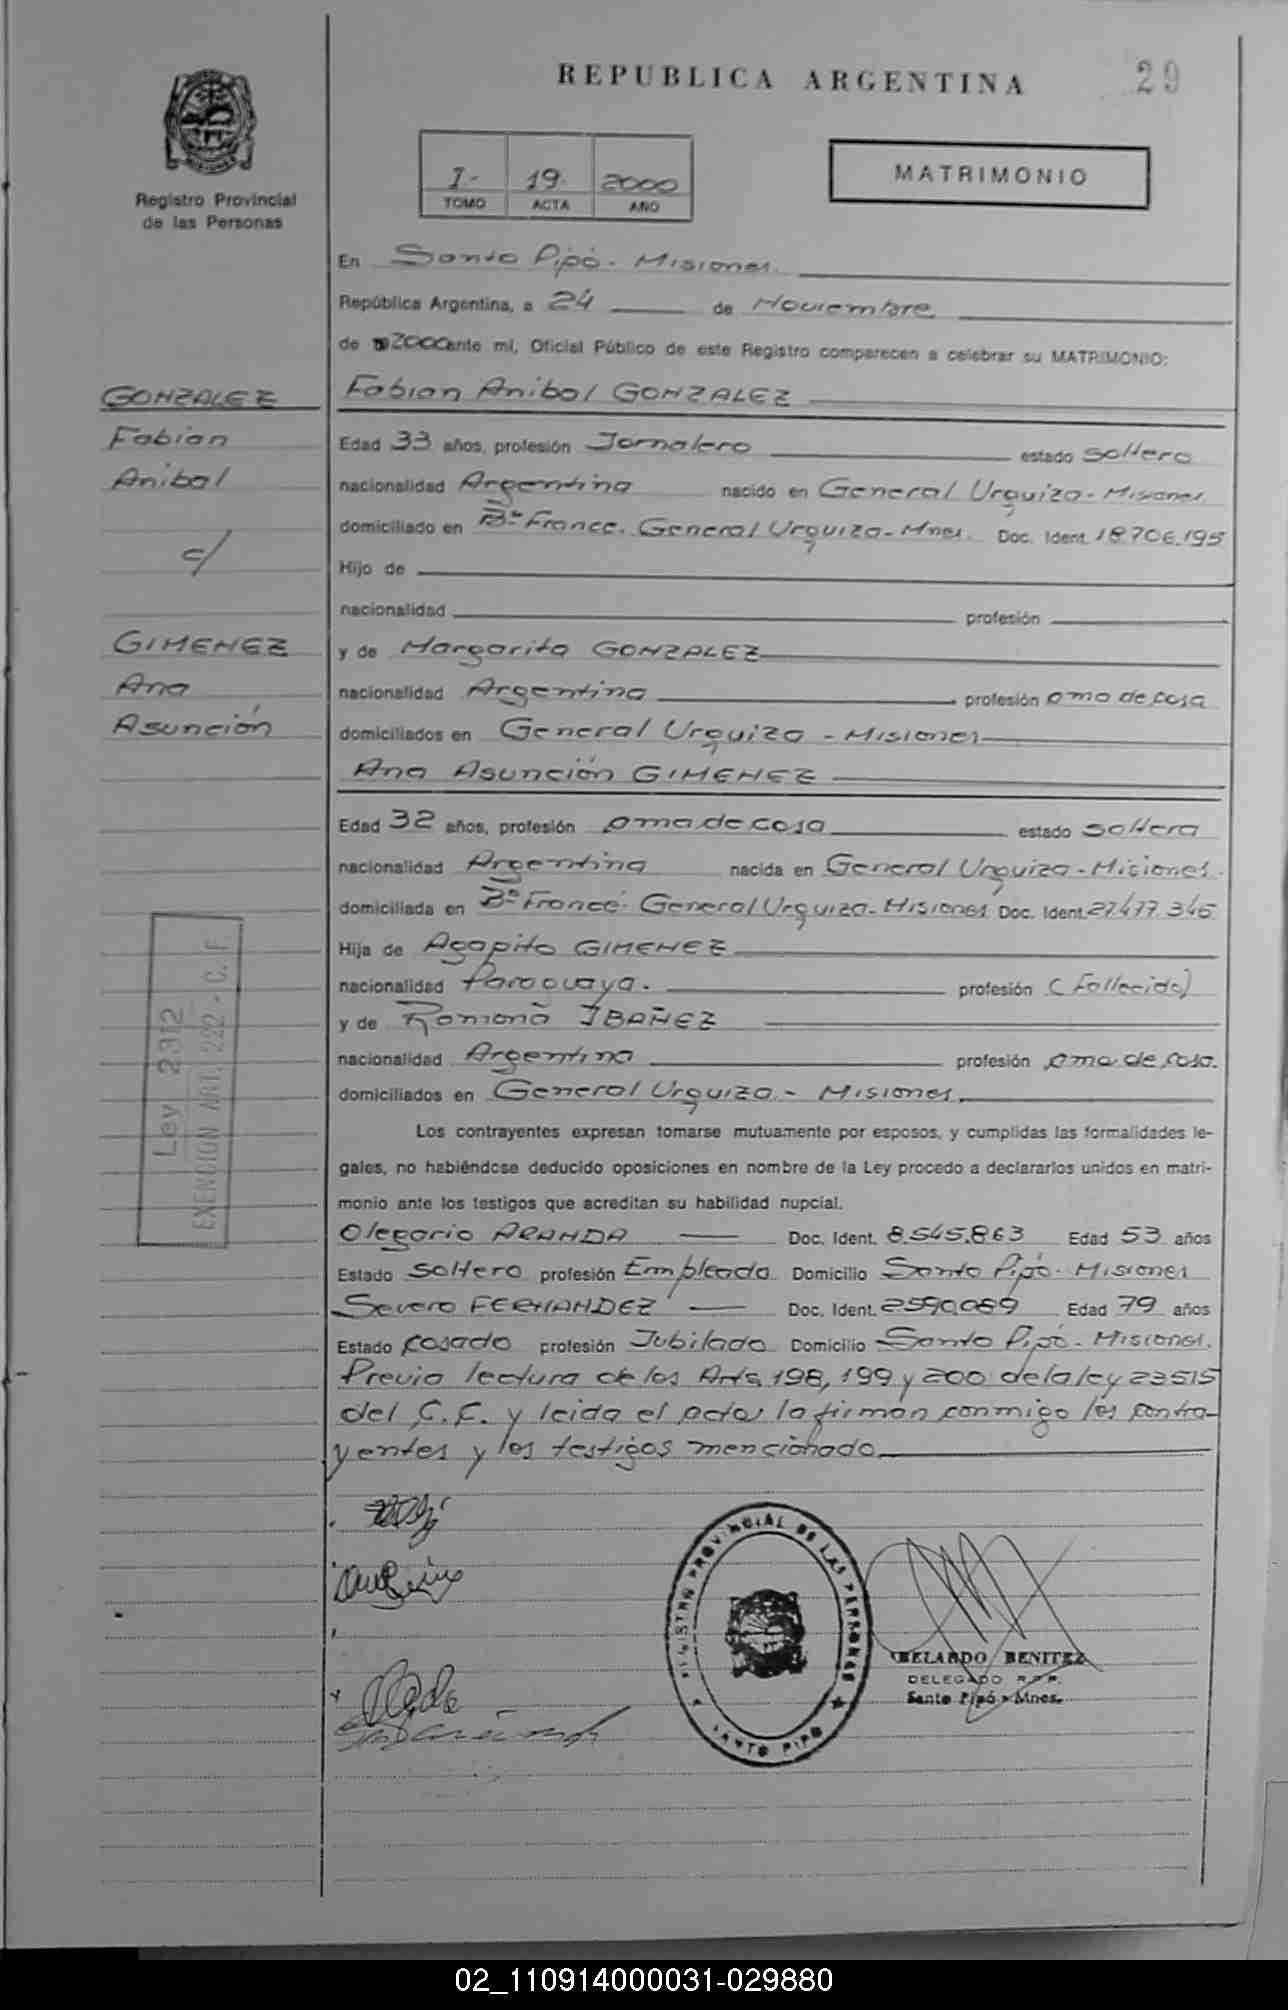 REPUBLICA ARGENTINA
29
Registro Provincial
de las Personas
I.- 19. 2000
TOMO ACTA AÑO
MATRIMONIO
En Santo Pipó - Misiones.
República Argentina, a 24 de Noviembre
de 2000 ante mi, Oficial Público de este Registro comparecen a celebrar su MATRIMONIO:
GONZALEZ
Fabian
Anibal
c/
GIMENEZ
Ana
Asunción
Fabian Anibal GONZALEZ
Edad 33 años, profesión Jornalero estado soltero
nacionalidad Argentina nacido en General Urquiza - Misiones
domiciliado en Bº France. General Urquiza - Mnes. Doc. Ident. 18.706.195
Hijo de
nacionalidad profesión
y de Margarita GONZALEZ
nacionalidad Argentina profesión ama de casa
domiciliados en General Urquiza - Misiones
Ana Asunción GIMENEZ
Edad 32 años, profesión ama de casa estado soltera
nacionalidad Argentina nacida en General Urquiza - Misiones.
domiciliada en Bº Francé. General Urquiza - Misiones Doc. Ident. 27.477.345
Hija de Agapito GIMENEZ
nacionalidad Paraguaya. profesión (Fallecido)
y de Ramona IBAÑEZ
nacionalidad Argentina profesión ama de casa.
domiciliados en General Urquiza - Misiones.
Los contrayentes expresan tomarse mutuamente por esposos, y cumplidas las formalidades le-
gales, no habiéndose deducido oposiciones en nombre de la Ley procedo a declararlos unidos en matri-
monio ante los testigos que acreditan su habilidad nupcial.
Olegario ARANDA Doc. Ident. 8.545.863 Edad 53 años
Estado soltero profesión Empleado Domicilio Santo Pipó - Misiones
Severo FERNANDEZ Doc. Ident. 2590.089 Edad 79 años
Estado casado profesión Jubilado Domicilio Santo Pipó - Misiones.
Previa lectura de los Arts. 198, 199 y 200 de la ley 23515
del C.C. y leida el acta, la firman conmigo los contra-
yentes y los testigos mencionado
Ley 2312
EXENCION ART. 222 - C. F
REGISTRO PROVINCIAL DE LAS PERSONAS
SANTO PIPO
BELARDO BENITEZ
DELEGADO R.P.P.
Santo Pipó - Mnes.
02_110914000031-029880